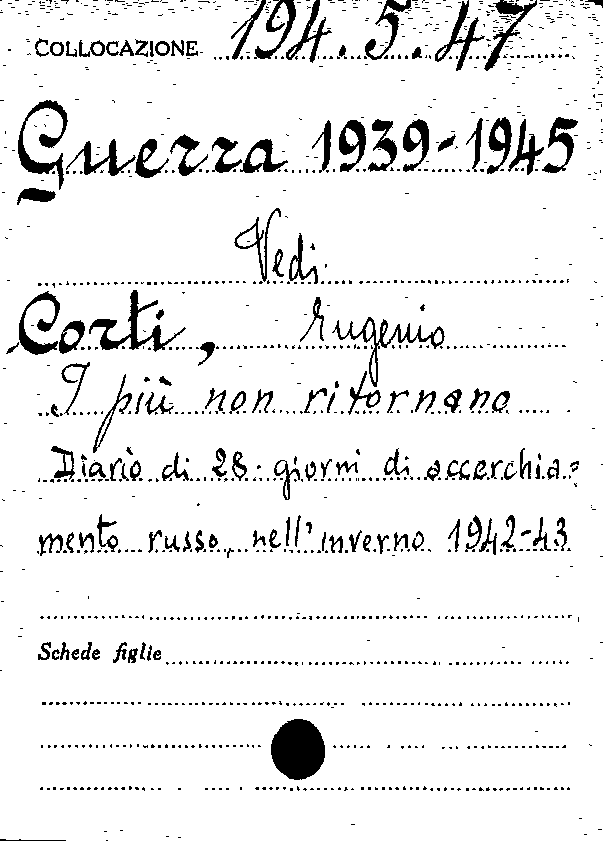 COLLOCAZIONE 194.5.47
Guerra 1939-1945
Vedi
Corti, Eugenio
I più non ritornano
Diario di 28 giorni di accerchia=
mento russo, nell'inverno 1942-43
Schede figlie